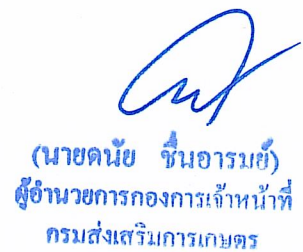 (นายดนัย ชื่นอารมย์)
ผู้อำนวยการกองการเจ้าหน้าที่
กรมส่งเสริมการเกษตร